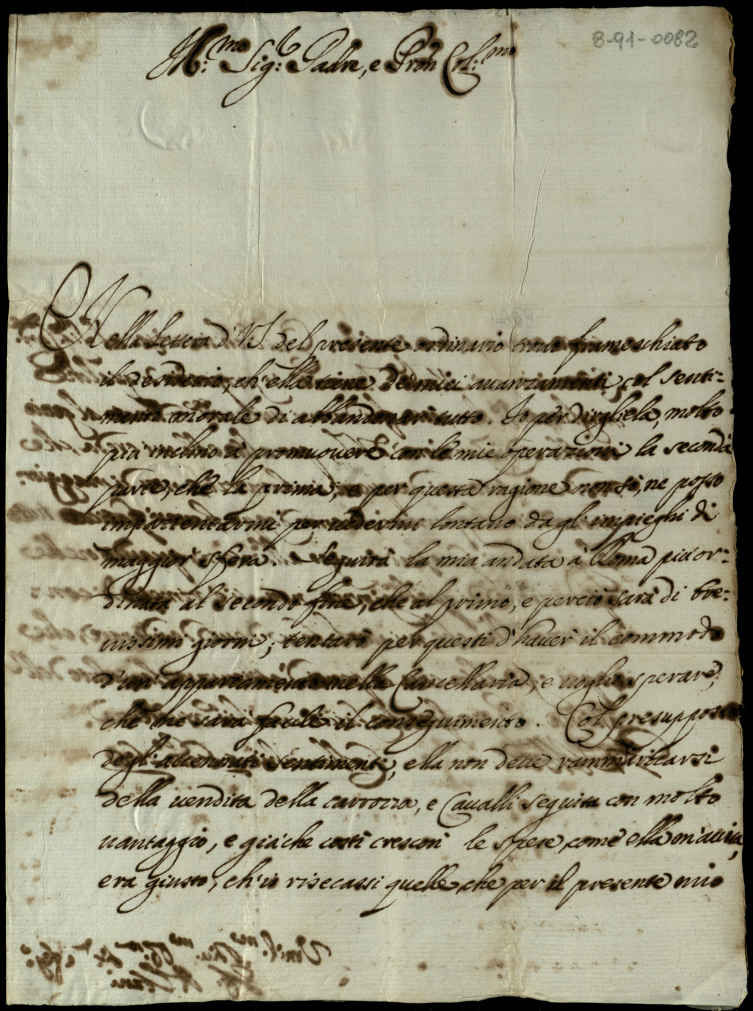 8-91-0082
Ill.mo Sig.r Padre, e Pron Col.mo
Nella lettera di V.S. del presente ordinario trovo frameschiato
il desiderio, ch'ella tiene de miei avanzamenti col senti-
mento morale di abbandonar tutto. Io per dirgliela, molto
più inclino à promuovere con le mie operazioni la seconda
parte, che la prima, e per questa ragione non sò, ne posso
impazientarmi per vedermi lontano da gl'impieghi di
maggior sfera. Seguirà la mia andata à Roma più or-
dinata al secondo fine, che al primo, e perciò sarà di bre-
vissimi giorni; tentarò per questi d'haver il commodo
d'un appartamento nella Cancellaria, e voglio sperare,
che me sarà facile il conseguimento. Col presupposto
degl'accennati sentimenti, ella non deve rammaricarsi
della vendita della carrozza, e Cavalli seguita con molto
vantaggio, e giàche costì cresconi le spese, come ella m'avvisa,
era giusto, ch'io risecassi quelle, che per il presente mio